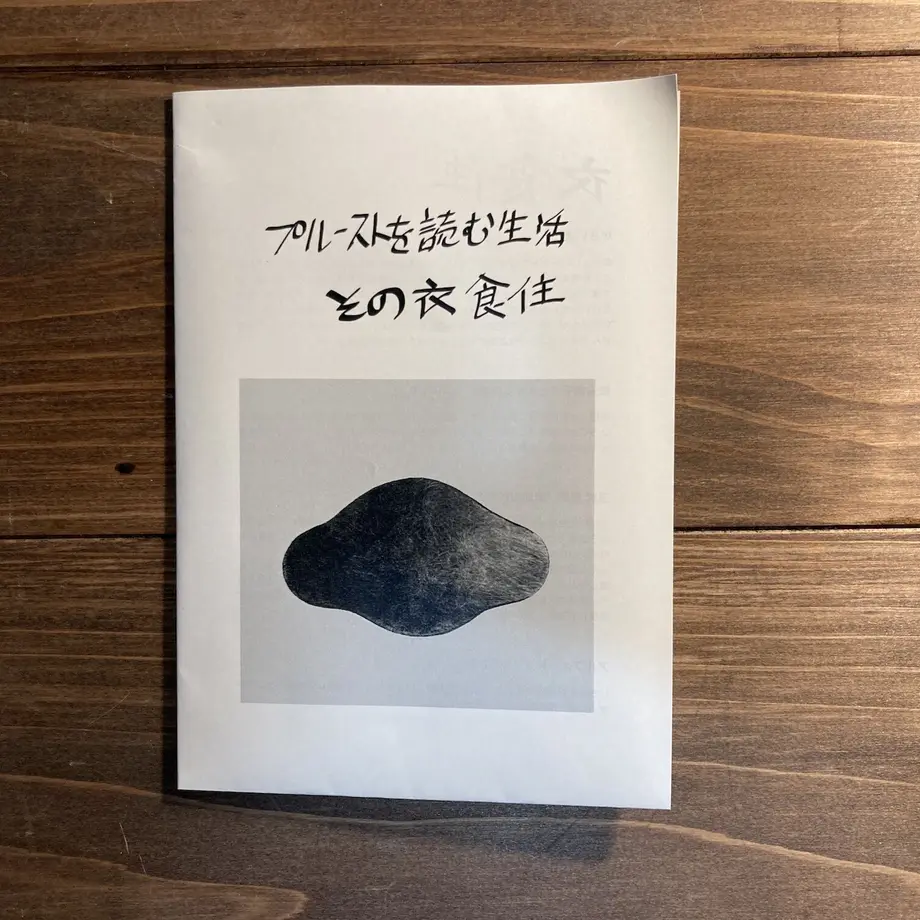 プルーストを読む生活
その衣食住